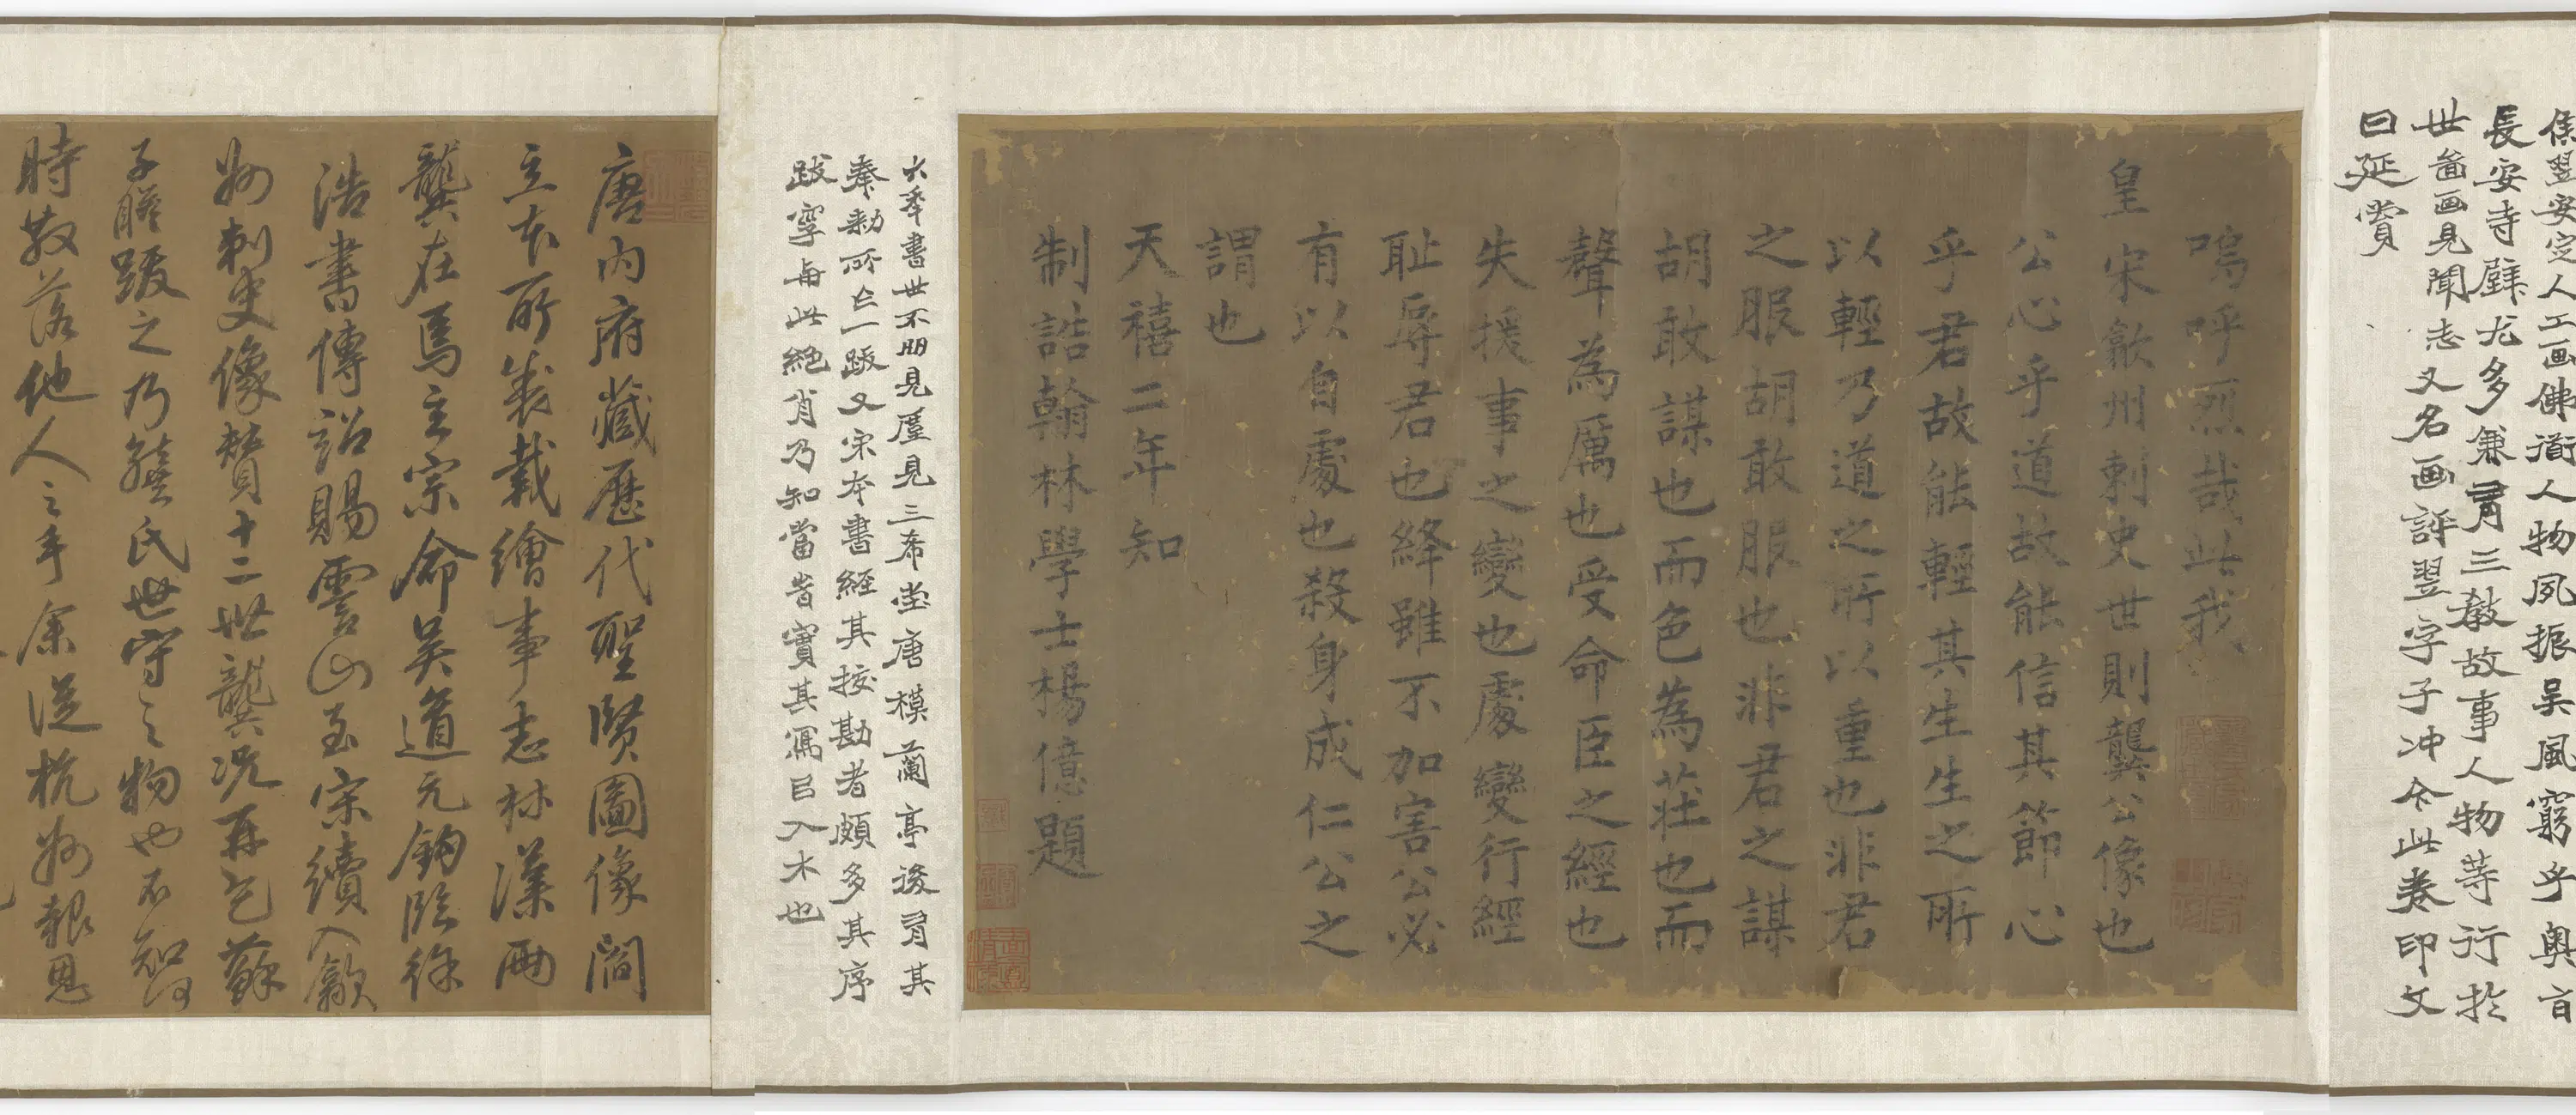 焦翌安定人工画佛道人物夙振吴風窮乎奥旨
長安寺壁尤多兼有三教故事人物等行於
世啚画見聞志又名画評翌字子冲今此卷印文
曰延賞
嗚呼烈哉此我
皇宋歙州刺史世則龔公像也
公心乎道故能信其節心
乎君故能輕其生生之所
以輕乃道之所以重也非君
之服胡敢服也非君之謀
胡敢謀也而色為莊也而
聲為厲也受命臣之經也
失援事之變也處變行經
耻辱君也絳雖不加害公必
有以自處也殺身成仁公之
謂也
天禧二年知
制誥翰林學士楊億題
大年書世不朋見廑見三希堂唐模蘭亭後有其
奉勅所亡一跋又宋本書經其挍勘者頗多其序
跋字与此絕肖乃知當昔實其寫㠯入木也
唐内府藏歷代聖賢圖像閻
立本所製載繪事志林漢兩
龔在焉玄宗命吴道元鈎臨徐
浩書傳詔賜雲山至宋續入歙
州刺史像贊十二世龔況再乞蘇
子瞻跋之乃龔氏世守之物也不知何
時散落他人之手余從杭州報恩